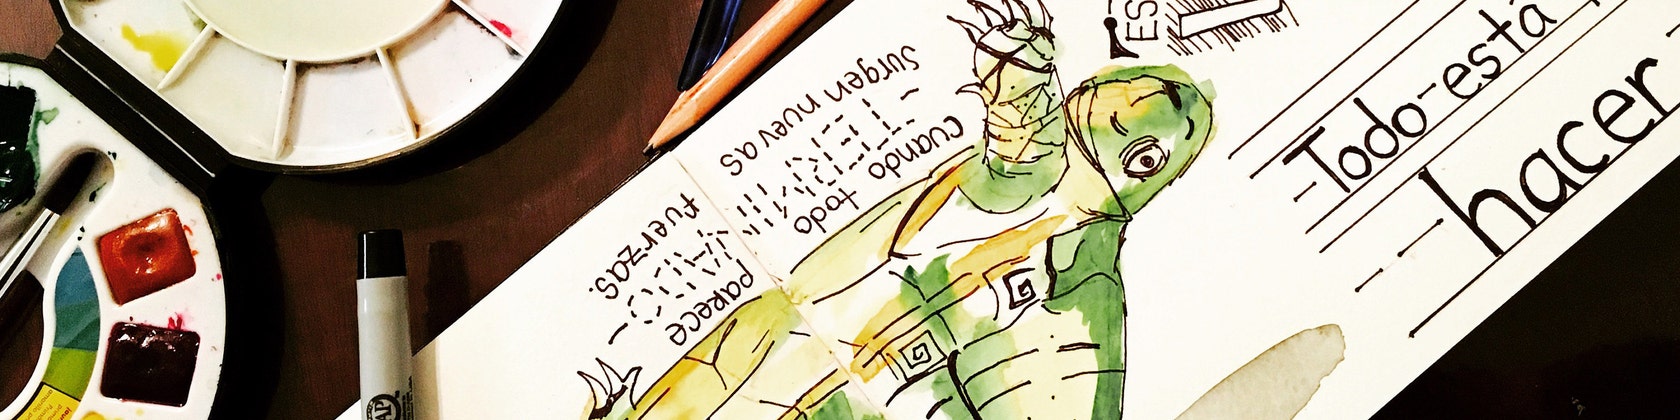 Todo-está
hacer
cuando
todo
parece
Surgen nuevas
fuerzas.
ES
AP